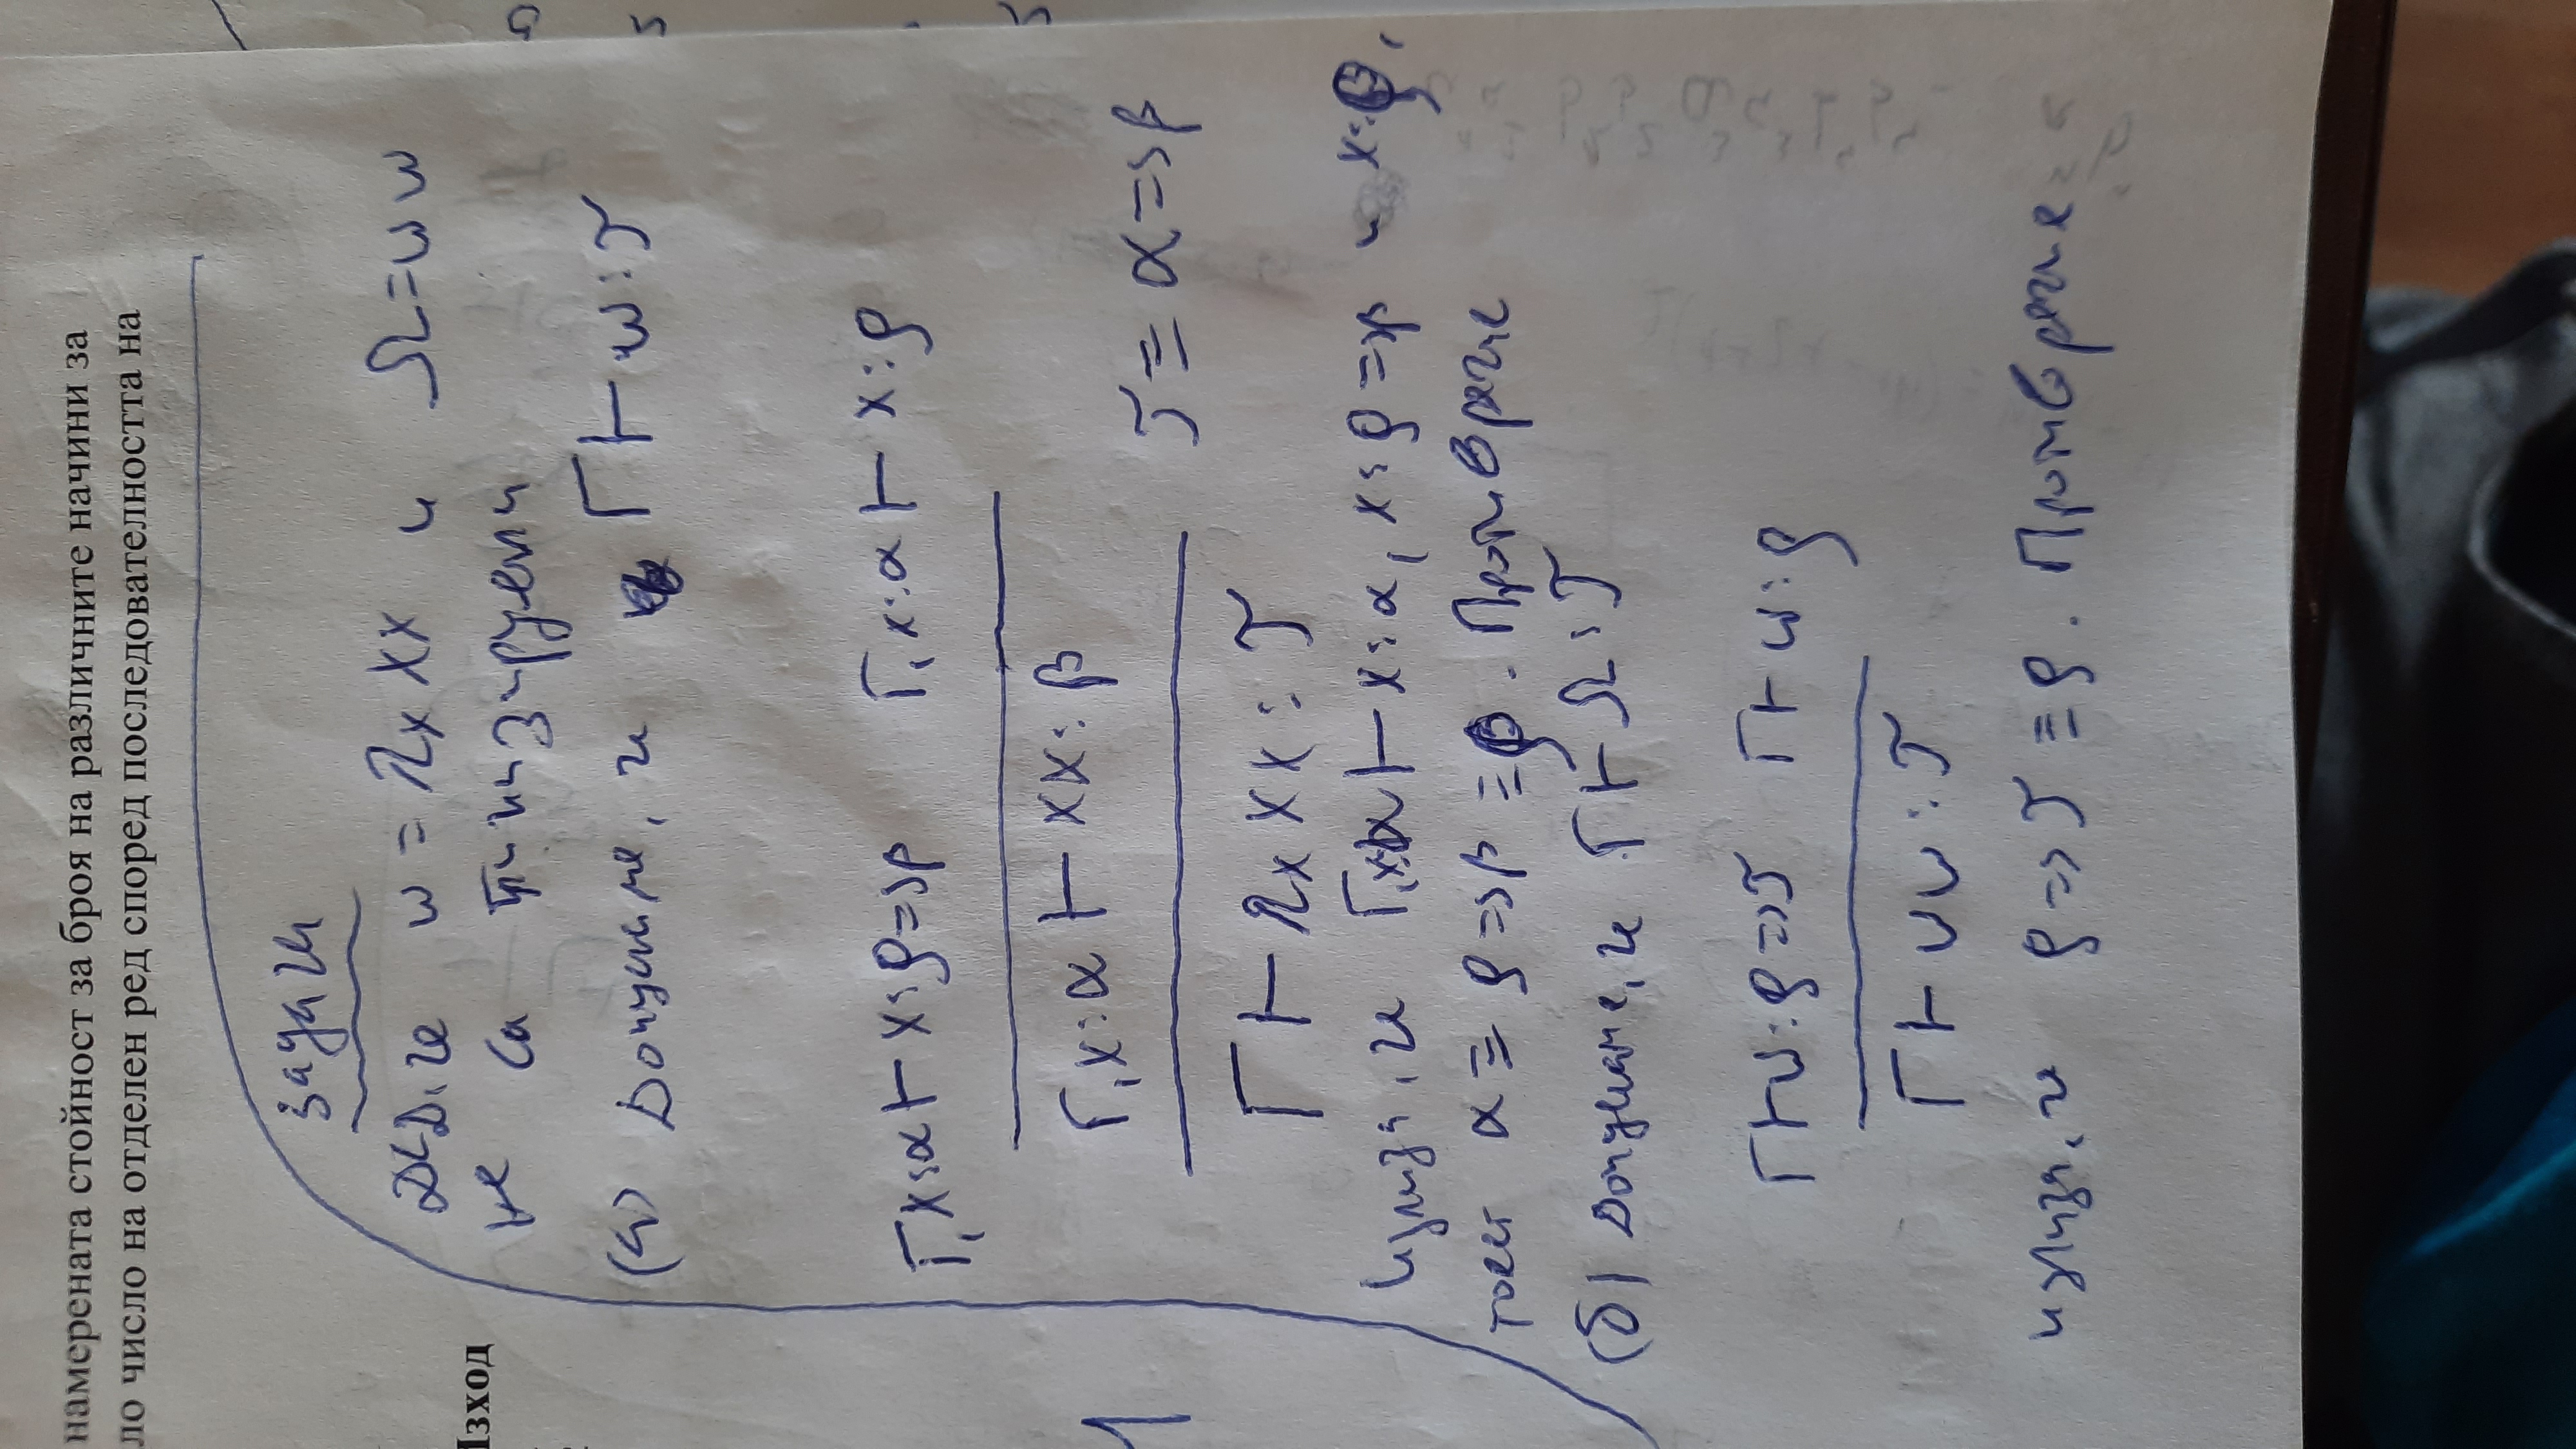 намерената стойност за броя на различните начини за
ло число на отделен ред според последователността на
Изход
задача
ДКД, че ω = λx xx и Ω = ωω
не са типизируеми
(а) Допускаме, че Γ ⊢ ω : τ
Γ, x:α ⊢ x : ρ ⇒ β Γ, x:α ⊢ x : ρ
Γ, x:α ⊢ xx : β
τ ≡ α ⇒ β
Γ ⊢ λx xx : τ
1
излиза, че Γ, x:α ⊢ x : α, x : ρ ⇒ β и x : ρ,
тоест α ≡ ρ ⇒ β ≡ ρ. Противоречие
(б) Допускаме, че Γ ⊢ Ω : τ
Γ ⊢ ω : ρ ⇒ τ Γ ⊢ ω : ρ
Γ ⊢ ωω : τ
излиза, че ρ ⇒ τ ≡ ρ. Противоречие